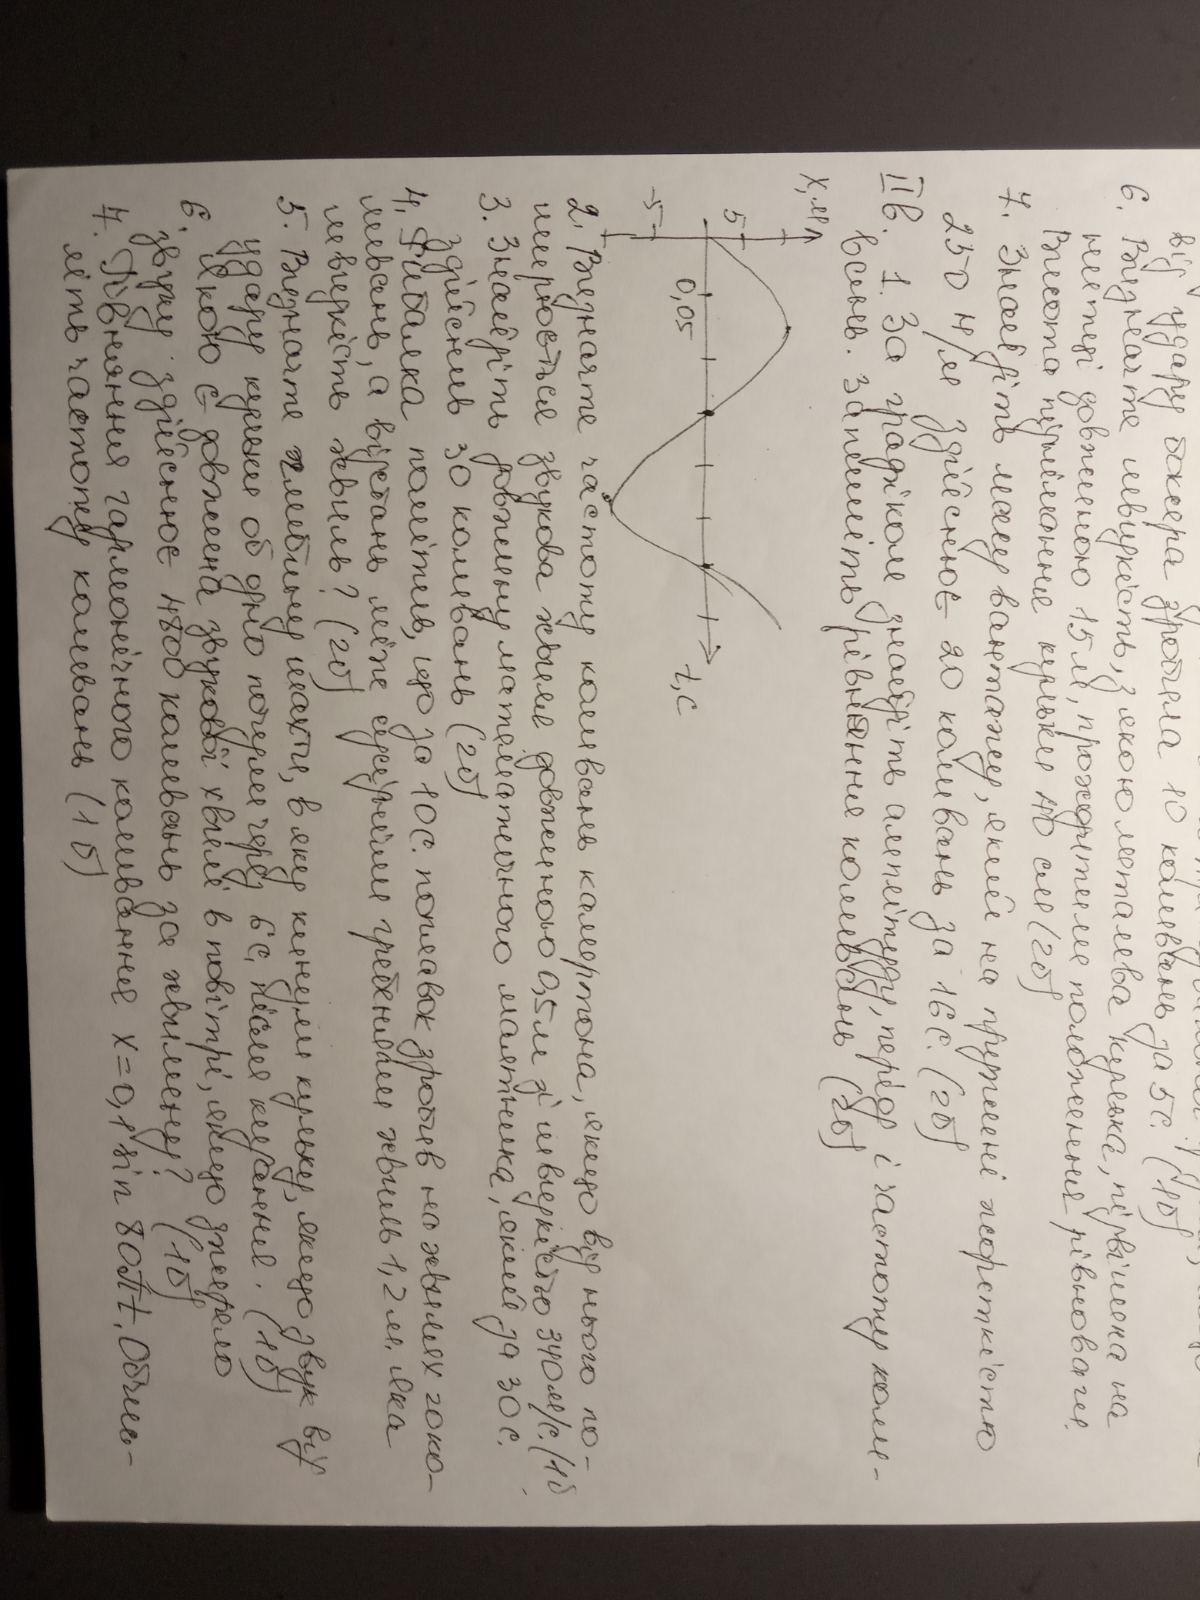 від удару боксера зробила 10 коливань за 5с. (1б)
6. Визначте швидкість, з якою металева кулька, підвішена на
нитці довжиною 15м, проходитиме положення рівноваги.
Висота піднімання кульки 40 см (2б)
7. Знайдіть масу вантажу, який на пружині жорсткістю
250 Н/м здійснює 20 коливань за 16с. (2б)
IIв. 1. За графіком знайдіть амплітуду, період і частоту коли-
вань. Запишіть рівняння коливань (2б)
x, м
5
-5
0,05
t, с
2. Визначте частоту коливань камертона, якщо від нього по-
ширюється звукова хвиля довжиною 0,5м зі швидкістю 340м/с. (1б
3. Знайдіть довжину математичного маятника, який за 30с.
здійснив 30 коливань (2б)
4. Рибалка помітив, що за 10с. поплавок зробив на хвилях 20 ко-
ливань, а відстань між сусідніми гребенями хвиль 1,2м. Яка
швидкість хвиль? (2б)
5. Визначте глибину шахти, в яку кинули кульку, якщо звук від
удару кульки об дно почули через 6с. після кидання. (1б)
6. Якою є довжина звукової хвилі в повітрі, якщо джерело
звуку здійснює 4800 коливань за хвилину? (1б)
7. Рівняння гармонічного коливання x=0,1 sin 80πt. Обчис-
літь частоту коливань (1б)